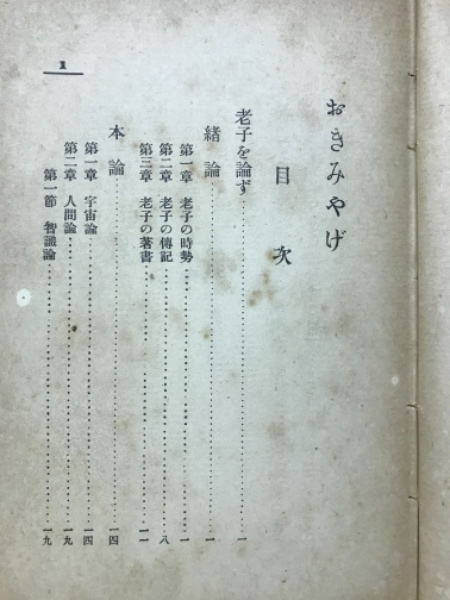 おきみやげ
目次
老子を論ず……………………一
緒論……………………一
第一章 老子の時勢……………………一
第二章 老子の傳記……………………八
第三章 老子の著書……………………一一
本論……………………一四
第一章 宇宙論……………………一四
第二章 人間論……………………一九
第一節 智識論……………………一九
1